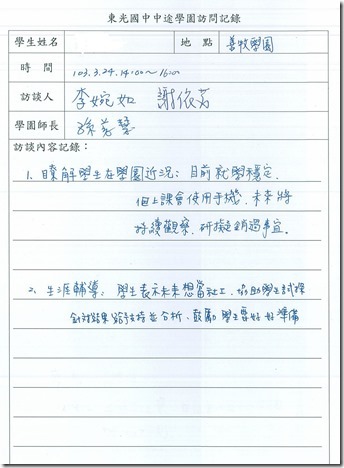 東光國中中途學園訪問記錄
學生姓名 地點 善牧學園
時間 103.3.24.14:00~16:00
訪談人 李婉如 謝依芳
學園師長 孫慧
訪談內容記錄:
1. 瞭解學生在學園近況: 目前就學穩定,
但上課會使用手機,未來將
持續觀察,研擬銷過事宜.
2. 生涯輔導: 學生表示未來想當社工,協助學生試探
針對結果給予支持並分析、鼓勵學生要好好準備